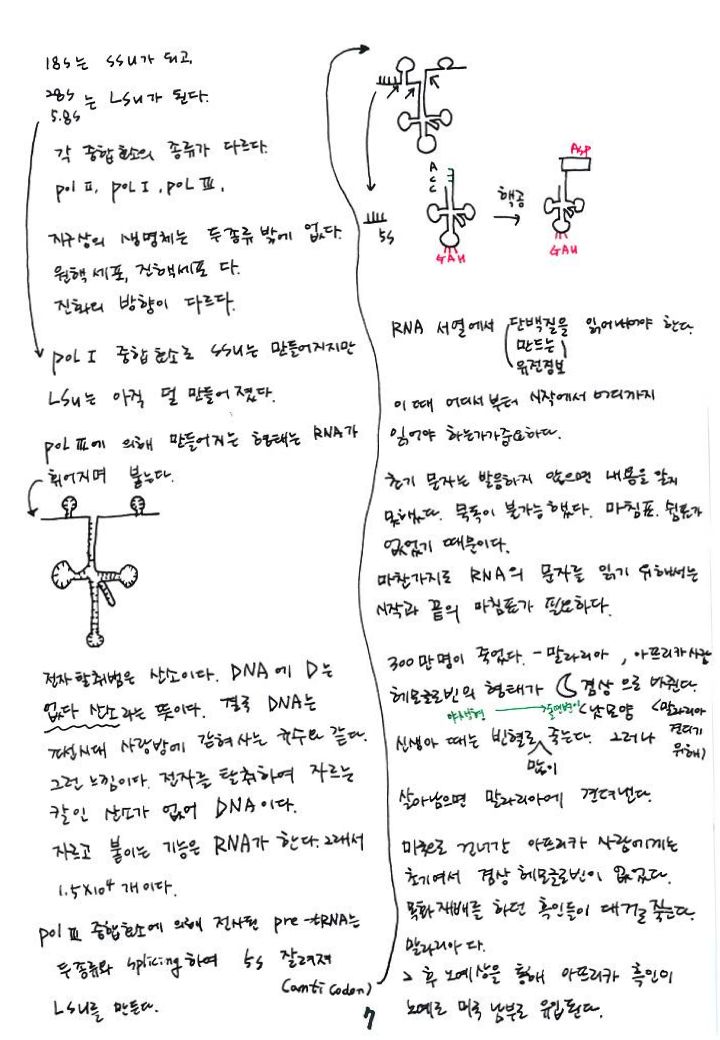 18S는 SSU가 되고,
28S
5.8S 는 LSU가 된다.
각 중합효소의 종류가 다르다.
pol II, pol I, pol III.
지구상의 생명체는 두종류 밖에 없다.
원핵세포, 진핵세포 다.
진화의 방향이 다르다.
pol I 중합효소로 SSU는 만들어지지만
LSU는 아직 덜 만들어졌다.
pol III에 의해 만들어지는 형태는 RNA가
휘어지며 붙는다.
전자 탈취범은 산소이다. DNA에 D는
없다 산소라는 뜻이다. 결국 DNA는
시대 사랑방에 갇혀사는 같다.
그런 느낌이다. 전자를 탈취하여 자르는
칼인 산소가 없어 DNA이다.
자르고 붙이는 기능은 RNA가 한다. 그래서
1.5×10⁴ 개이다.
pol III 중합효소에 의해 전사된 pre-tRNA는
두종류와 splicing하여 5S 잘려져
(anti codon)
LSU를 만든다.
A
C
C
5S
GAU
핵공
ASP
GAU
RNA 서열에서 단백질을 읽어내야 한다.
만드는
유전정보
이 때 어디서 부터 시작에서 어디까지
읽어야 하는가가 중요하다.
초기 문자는 발음하지 않으면 내용을 알지
못했다. 묵독이 불가능했다. 마침표, 쉼표가
없었기 때문이다.
마찬가지로 RNA의 문자를 읽기 위해서는
시작과 끝의 마침표가 필요하다.
300만명이 죽었다. - 말라리아, 아프리카 사람
헤모글로빈의 형태가 겸상 으로 바뀐다.
야생형 돌연변이 낫모양 (말라리아
신생아 때는 빈혈로 죽는다. 그러나 견디기
많이 위해)
살아남으면 말라리아에 견뎌낸다.
미국으로 건너간 아프리카 사람에게는
초기여서 겸상 헤모글로빈이 없었다.
목화재배를 하던 흑인들이 대거로 죽는다.
말라리아 다.
그 후 노예상을 통해 아프리카 흑인이
노예로 미국 남부로 유입된다.
7